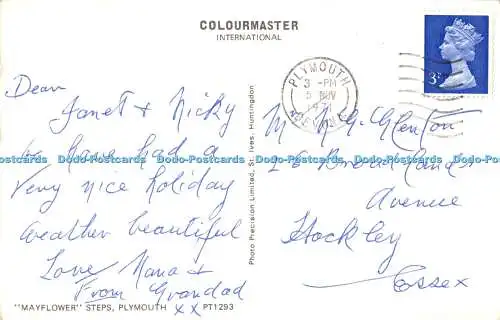 COLOURMASTER
INTERNATIONAL
Dear
Janet & Nicky
we have had a
very nice holiday
weather beautiful
Love Nana &
From Grandad
xx
"MAYFLOWER" STEPS, PLYMOUTH PT1293
Photo Precision Limited, St. Ives, Huntingdon
PLYMOUTH
3 - PM
5 NOV
1971
3P
Avenue
Hockley
Essex
Dodo-Postcards Dodo-Postcards Dodo-Postcards Dodo-Postcards Dodo-Postcards